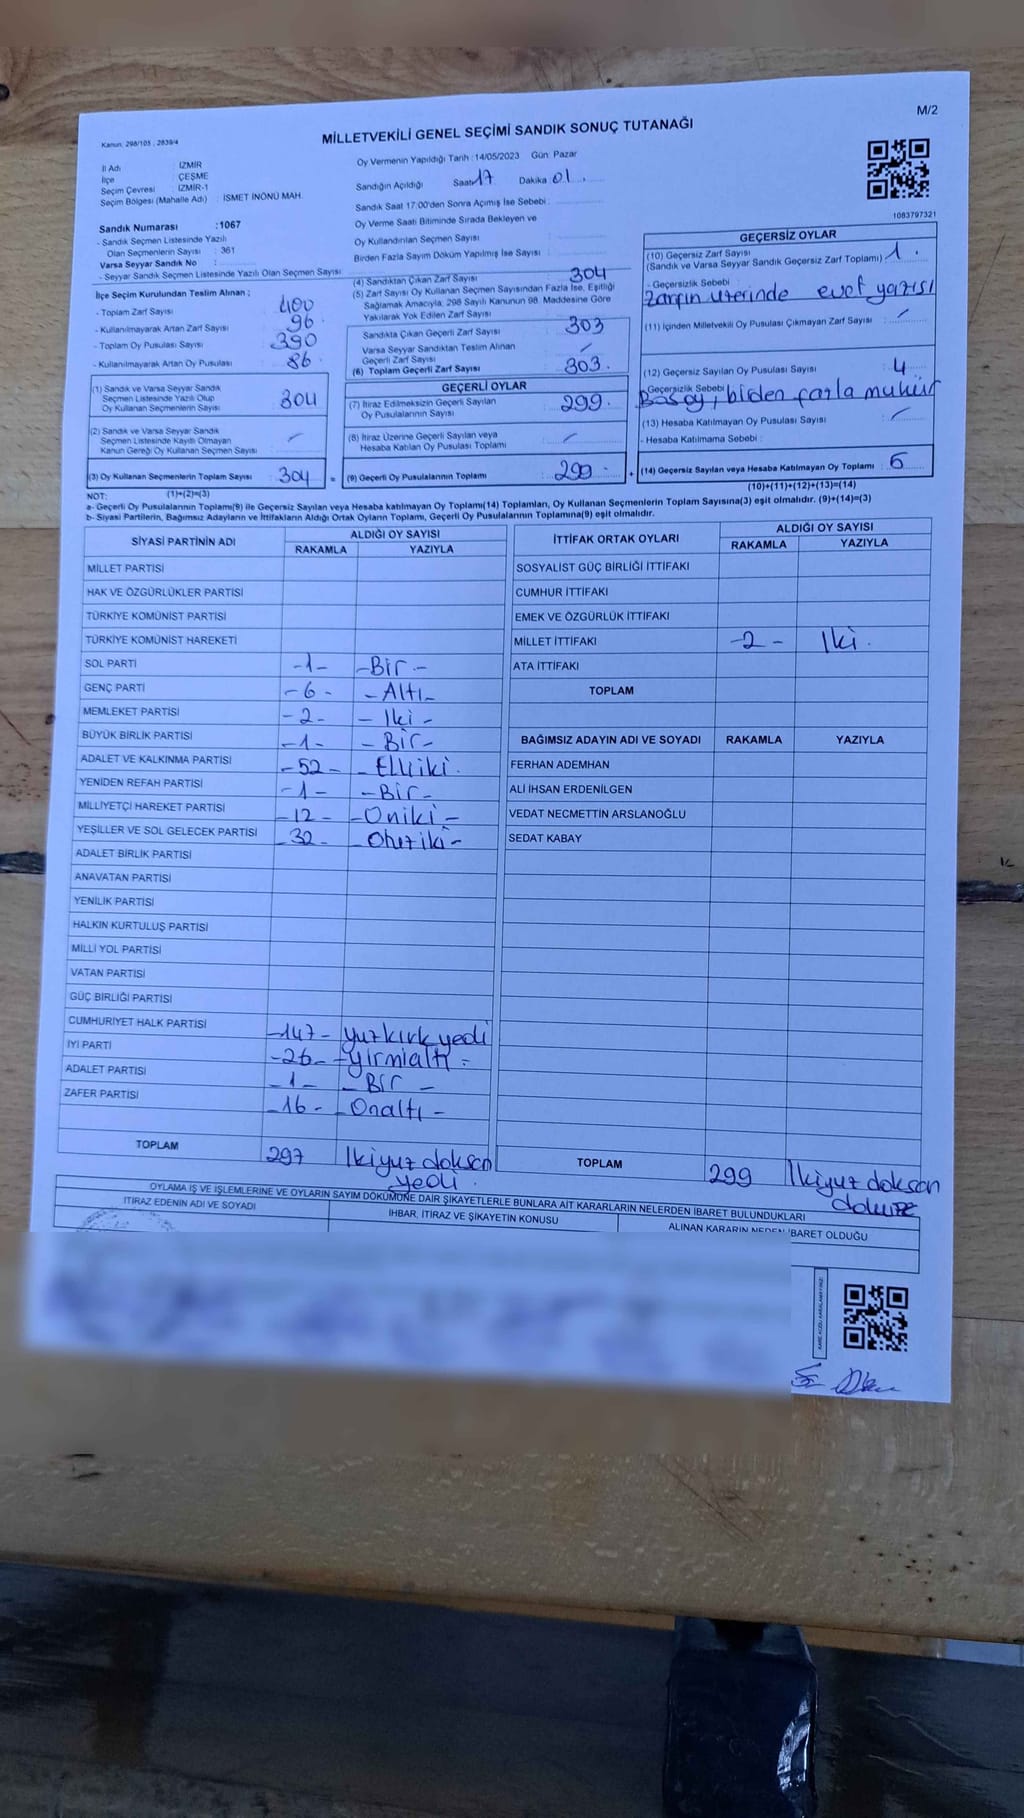 M/2
Kanun, 298/105 ; 2839/4
MİLLETVEKİLİ GENEL SEÇİMİ SANDIK SONUÇ TUTANAĞI
İl Adı : İZMİR
İlçe : ÇEŞME
Seçim Çevresi : İZMİR-1
Seçim Bölgesi (Mahalle Adı) : İSMET İNÖNÜ MAH.
Oy Vermenin Yapıldığı Tarih : 14/05/2023 Gün: Pazar
Sandığın Açıldığı Saat 17 Dakika 01
Sandık Saat 17:00'den Sonra Açımış İse Sebebi :
Oy Verme Saati Bitiminde Sırada Bekleyen ve
Oy Kullandırılan Seçmen Sayısı :
Birden Fazla Sayım Döküm Yapılmış İse Sayısı :
1083797321
Sandık Numarası : 1067
- Sandık Seçmen Listesinde Yazılı
Olan Seçmenlerin Sayısı : 361
Varsa Seyyar Sandık No :
- Seyyar Sandık Seçmen Listesinde Yazılı Olan Seçmen Sayısı :
İlçe Seçim Kurulundan Teslim Alınan ;
- Toplam Zarf Sayısı : 400
- Kullanılmayarak Artan Zarf Sayısı : 96
- Toplam Oy Pusulası Sayısı : 390
- Kullanılmayarak Artan Oy Pusulası : 86
(1) Sandık ve Varsa Seyyar Sandık
Seçmen Listesinde Yazılı Olup
Oy Kullanan Seçmenlerin Sayısı : 304
(2) Sandık ve Varsa Seyyar Sandık
Seçmen Listesinde Kayıtlı Olmayan
Kanun Gereği Oy Kullanan Seçmen Sayısı : -
(3) Oy Kullanan Seçmenlerin Toplam Sayısı : 304
(1)+(2)=(3)
(4) Sandıktan Çıkan Zarf Sayısı : 304
(5) Zarf Sayısı Oy Kullanan Seçmen Sayısından Fazla İse, Eşitliği
Sağlamak Amacıyla; 298 Sayılı Kanunun 98. Maddesine Göre
Yakılarak Yok Edilen Zarf Sayısı :
Sandıkta Çıkan Geçerli Zarf Sayısı : 303
Varsa Seyyar Sandıktan Teslim Alınan
Geçerli Zarf Sayısı : -
(6) Toplam Geçerli Zarf Sayısı : 303
GEÇERLİ OYLAR
(7) İtiraz Edilmeksizin Geçerli Sayılan
Oy Pusulalarının Sayısı : 299
(8) İtiraz Üzerine Geçerli Sayılan veya
Hesaba Katılan Oy Pusulası Toplamı : -
= (9) Geçerli Oy Pusulalarının Toplamı : 299
GEÇERSİZ OYLAR
(10) Geçersiz Zarf Sayısı
(Sandık ve Varsa Seyyar Sandık Geçersiz Zarf Toplamı) : 1
- Geçersizlik Sebebi :
Zarfın üzerinde evet yazısı
(11) İçinden Milletvekili Oy Pusulası Çıkmayan Zarf Sayısı : -
(12) Geçersiz Sayılan Oy Pusulası Sayısı : 4
- Geçersizlik Sebebi :
Boş oy, biden fazla mühür
(13) Hesaba Katılmayan Oy Pusulası Sayısı : -
- Hesaba Katılmama Sebebi :
+ (14) Geçersiz Sayılan veya Hesaba Katılmayan Oy Toplamı : 5
(10)+(11)+(12)+(13)=(14)
NOT:
a- Geçerli Oy Pusulalarının Toplamı(9) ile Geçersiz Sayılan veya Hesaba katılmayan Oy Toplamı(14) Toplamları, Oy Kullanan Seçmenlerin Toplam Sayısına(3) eşit olmalıdır. (9)+(14)=(3)
b- Siyasi Partilerin, Bağımsız Adayların ve İttifakların Aldığı Ortak Oyların Toplamı, Geçerli Oy Pusulalarının Toplamına(9) eşit olmalıdır.
SİYASİ PARTİNİN ADI ALDIĞI OY SAYISI
RAKAMLA YAZIYLA
MİLLET PARTİSİ
HAK VE ÖZGÜRLÜKLER PARTİSİ
TÜRKİYE KOMÜNİST PARTİSİ
TÜRKİYE KOMÜNİST HAREKETİ
SOL PARTİ -1- -Bir-
GENÇ PARTİ -6- -Altı-
MEMLEKET PARTİSİ -2- -İki-
BÜYÜK BİRLİK PARTİSİ -1- -Bir-
ADALET VE KALKINMA PARTİSİ -52- -Elliiki.
YENİDEN REFAH PARTİSİ -1- -Bir-
MİLLİYETÇİ HAREKET PARTİSİ -12- -Oniki-
YEŞİLLER VE SOL GELECEK PARTİSİ -32- -Otuziki-
ADALET BİRLİK PARTİSİ
ANAVATAN PARTİSİ
YENİLİK PARTİSİ
HALKIN KURTULUŞ PARTİSİ
MİLLİ YOL PARTİSİ
VATAN PARTİSİ
GÜÇ BİRLİĞİ PARTİSİ
CUMHURİYET HALK PARTİSİ -147- yuzkırk yedi
İYİ PARTİ -26- -yirmialtı-
ADALET PARTİSİ -1- -Bir-
ZAFER PARTİSİ -16- -Onaltı-
TOPLAM 297 İkiyuz doksan yedi.
İTTİFAK ORTAK OYLARI ALDIĞI OY SAYISI
RAKAMLA YAZIYLA
SOSYALİST GÜÇ BİRLİĞİ İTTİFAKI
CUMHUR İTTİFAKI
EMEK VE ÖZGÜRLÜK İTTİFAKI
MİLLET İTTİFAKI -2- İki.
ATA İTTİFAKI
TOPLAM
BAĞIMSIZ ADAYIN ADI VE SOYADI RAKAMLA YAZIYLA
FERHAN ADEMHAN
ALİ İHSAN ERDENİLGEN
VEDAT NECMETTİN ARSLANOĞLU
SEDAT KABAY
TOPLAM 299 İkiyuz doksan dokuz
OYLAMA İŞ VE İŞLEMLERİNE VE OYLARIN SAYIM DÖKÜMÜNE DAİR ŞİKAYETLERLE BUNLARA AİT KARARLARIN NELERDEN İBARET BULUNDUKLARI
İTİRAZ EDENİN ADI VE SOYADI İHBAR, İTİRAZ VE ŞİKAYETİN KONUSU ALINAN KARARIN NEDEN İBARET OLDUĞU